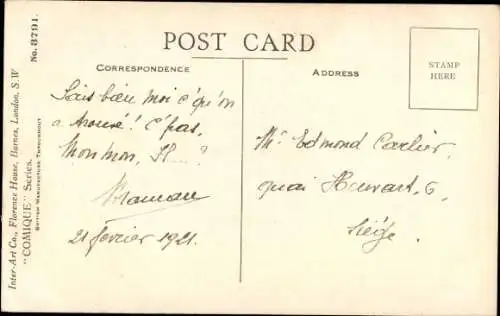 POST CARD
CORRESPONDENCE
ADDRESS
STAMP
HERE
Inter-Art Co., Florence House, Barnes, London, S.W
"COMIQUE" Series.
BRITISH MANUFACTURE THROUGHOUT
No. 3791.
Sais bien moi c'qu'on
a trouvé! C'pas,
Mon mon, H....?
21 février 1921.
Mr Edmond Carlier,
quai 6,
Liége.